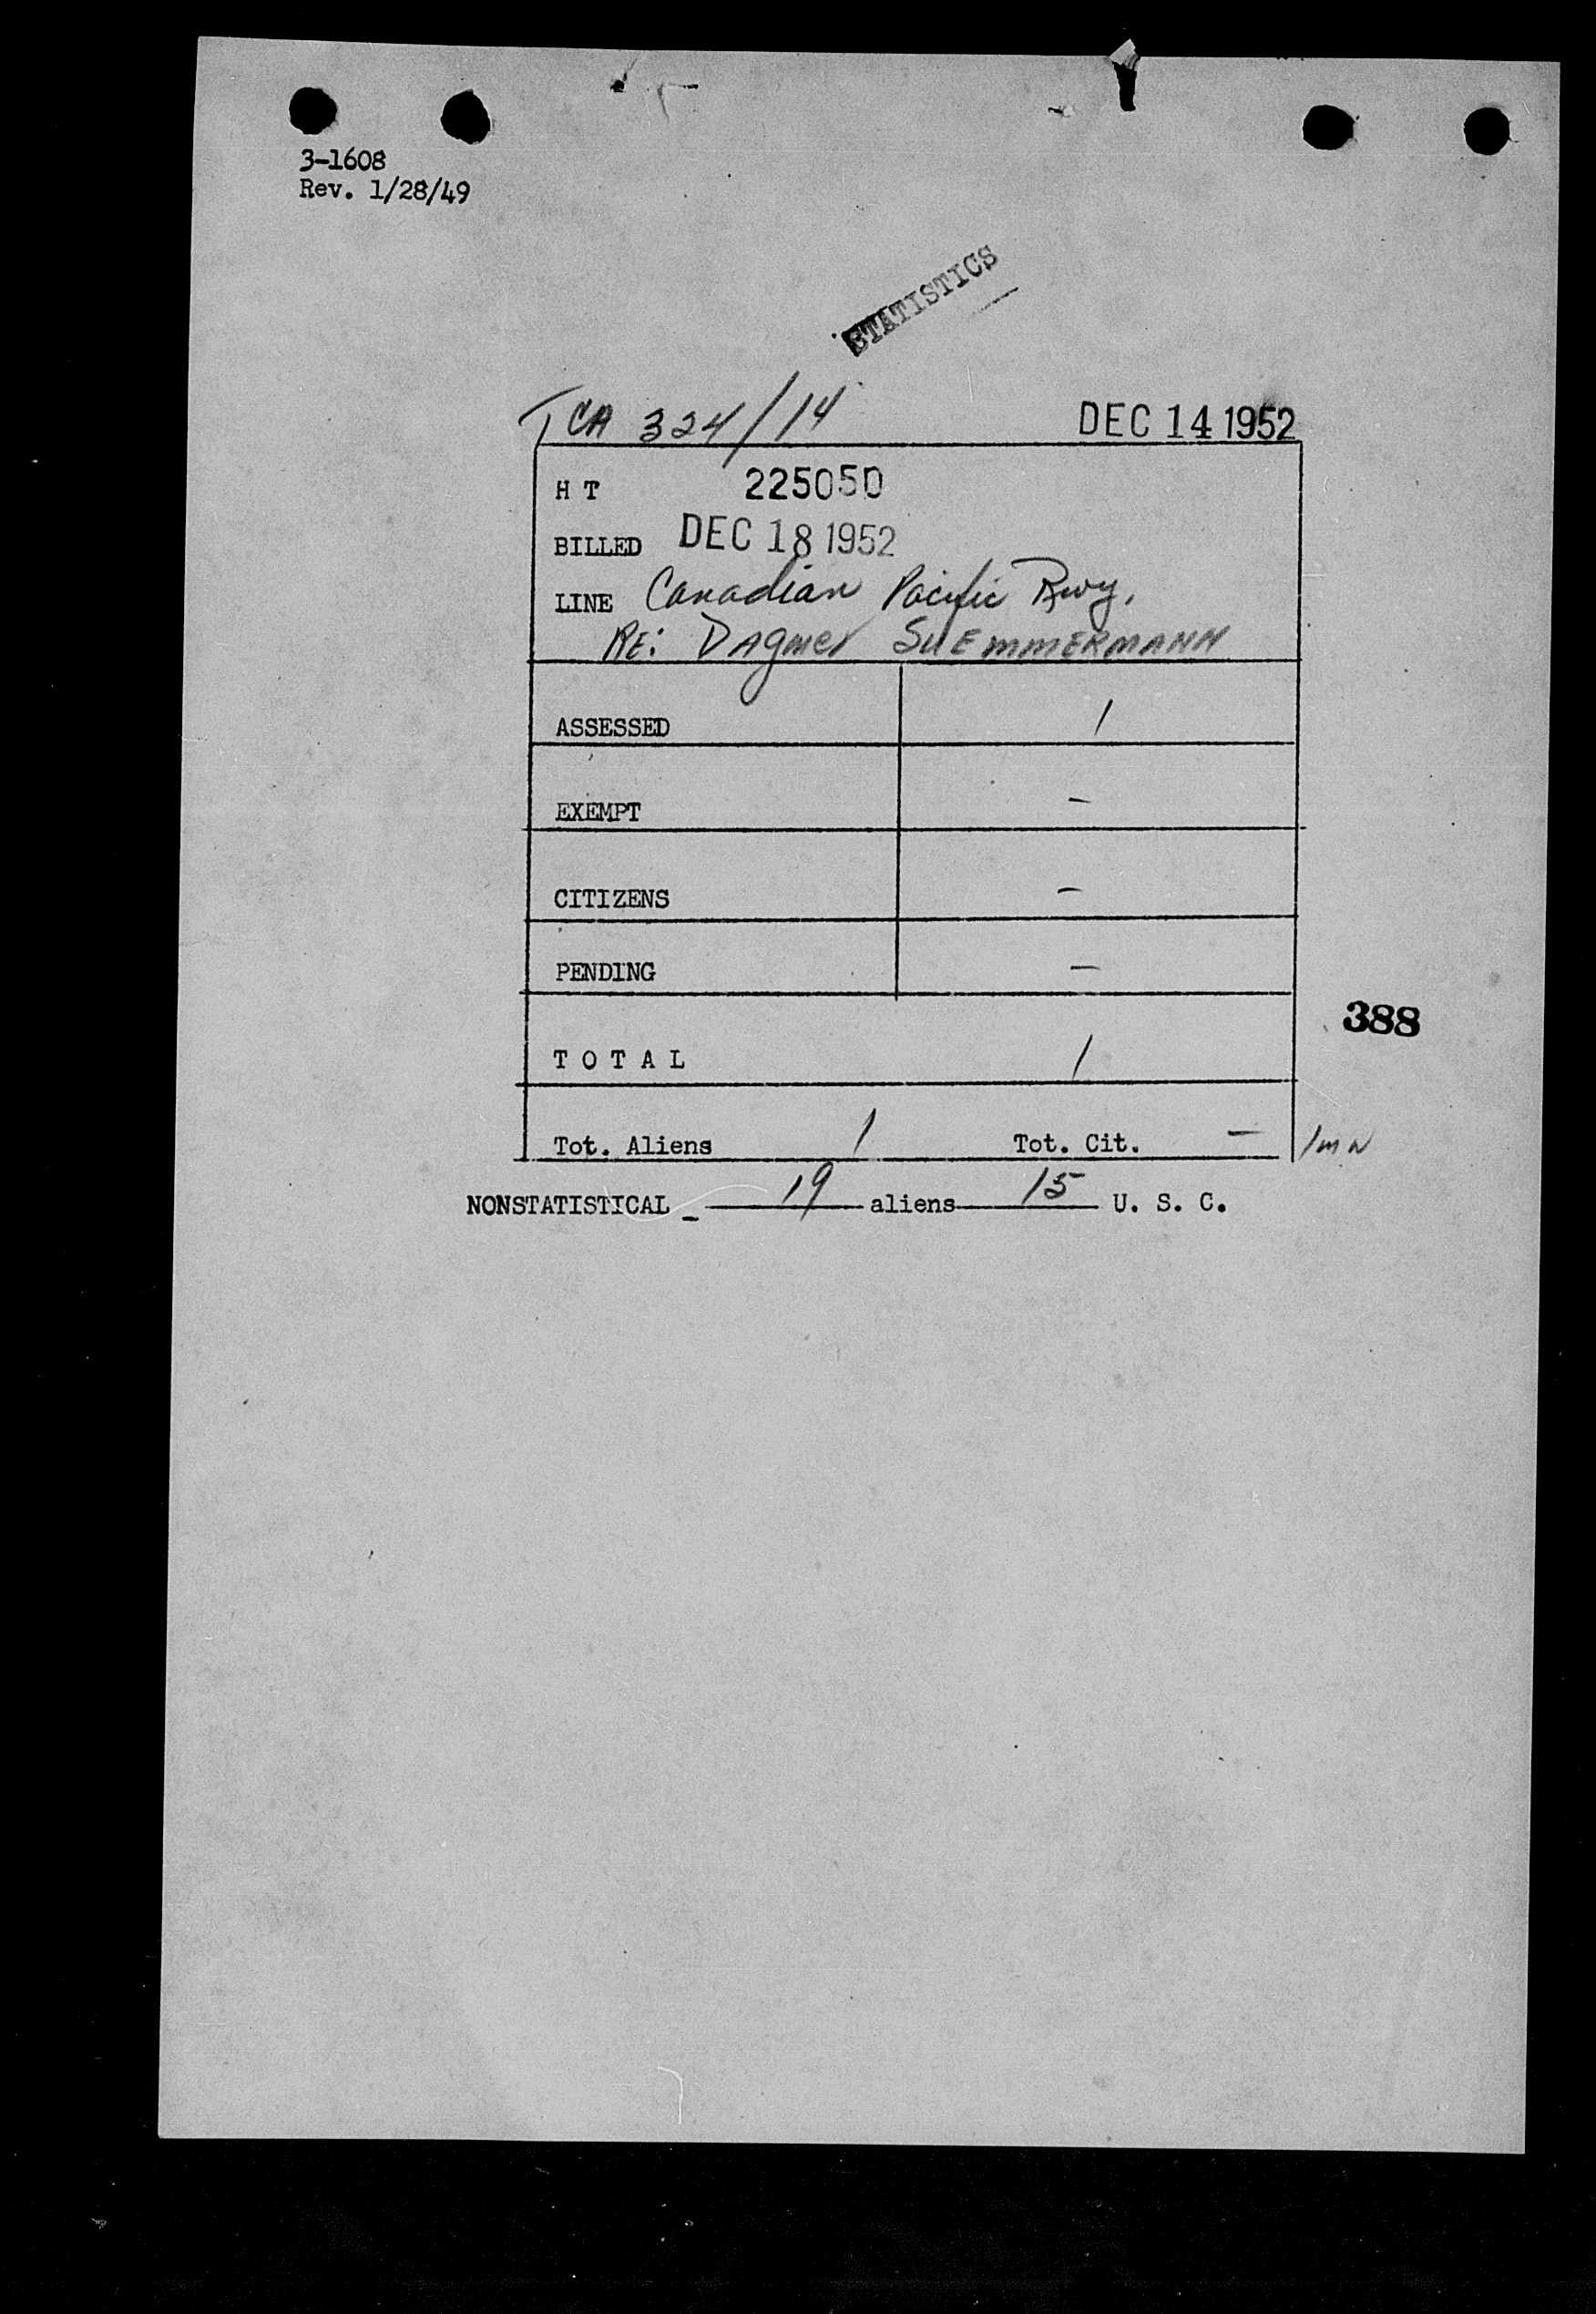 3-1608
Rev. 1/28/49
STATISTICS
TCA 324/14 DEC 14 1952
H T 225050
BILLED DEC 18 1952
LINE Canadian Pacific Rwy.
RE: DAgmer SUEMMERMANN
ASSESSED 1
EXEMPT –
CITIZENS –
PENDING –
388
T O T A L 1
Tot. Aliens 1 Tot. Cit. – 1 m N
NONSTATISTICAL - 19 aliens 15 U. S. C.